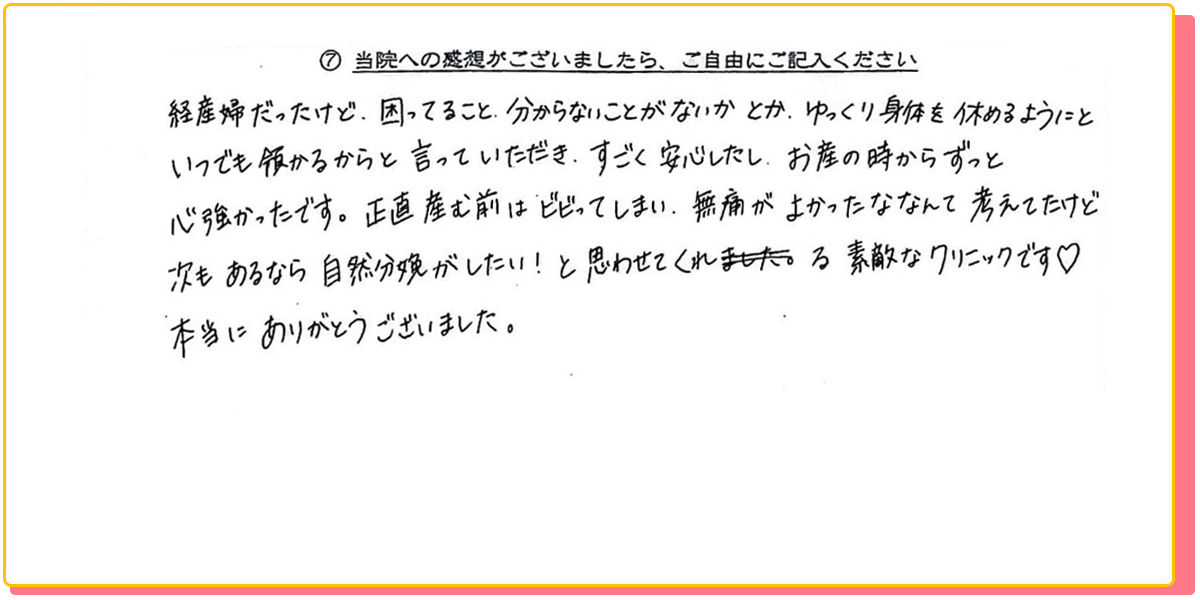 ⑦ 当院への感想がございましたら、ご自由にご記入ください
経産婦だったけど、困ってること、分からないことがないかとか、ゆっくり身体を休めるようにと
いつでも預かるからと言っていただき、すごく安心したし、お産の時からずっと
心強かったです。正直産む前はビビってしまい、無痛がよかったななんて考えてたけど
次もあるなら自然分娩がしたい！と思わせてくれました。る素敵なクリニックです♡
本当にありがとうございました。